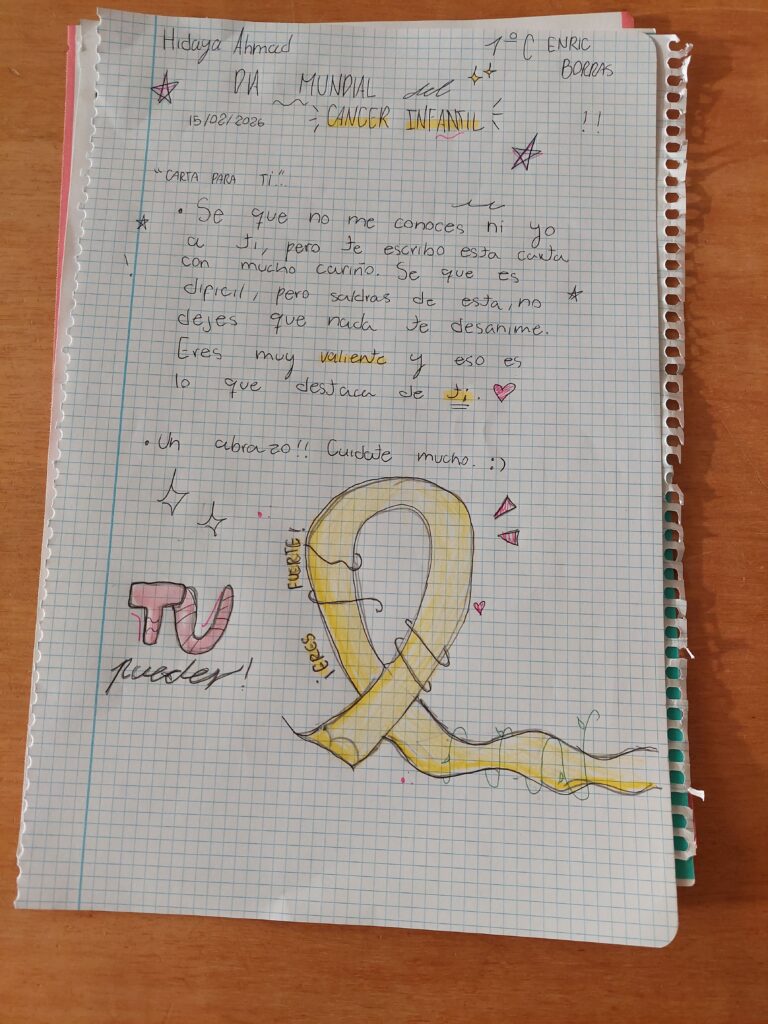 Hidaya Ahmad
1º C ENRIC
BORRAS
DIA MUNDIAL del
15/02/2026
CANCER INFANTIL
!!
"CARTA PARA TI"..
• Se que no me conoces ni yo
a ti, pero te escribo esta carta
con mucho cariño. Se que es
dificil, pero saldras de esta, no
dejes que nada te desanime.
Eres muy valiente y eso es
lo que destaca de ti.
• Un abrazo!! Cuidate mucho. :)
¡ERES FUERTE!
TU
puedes!